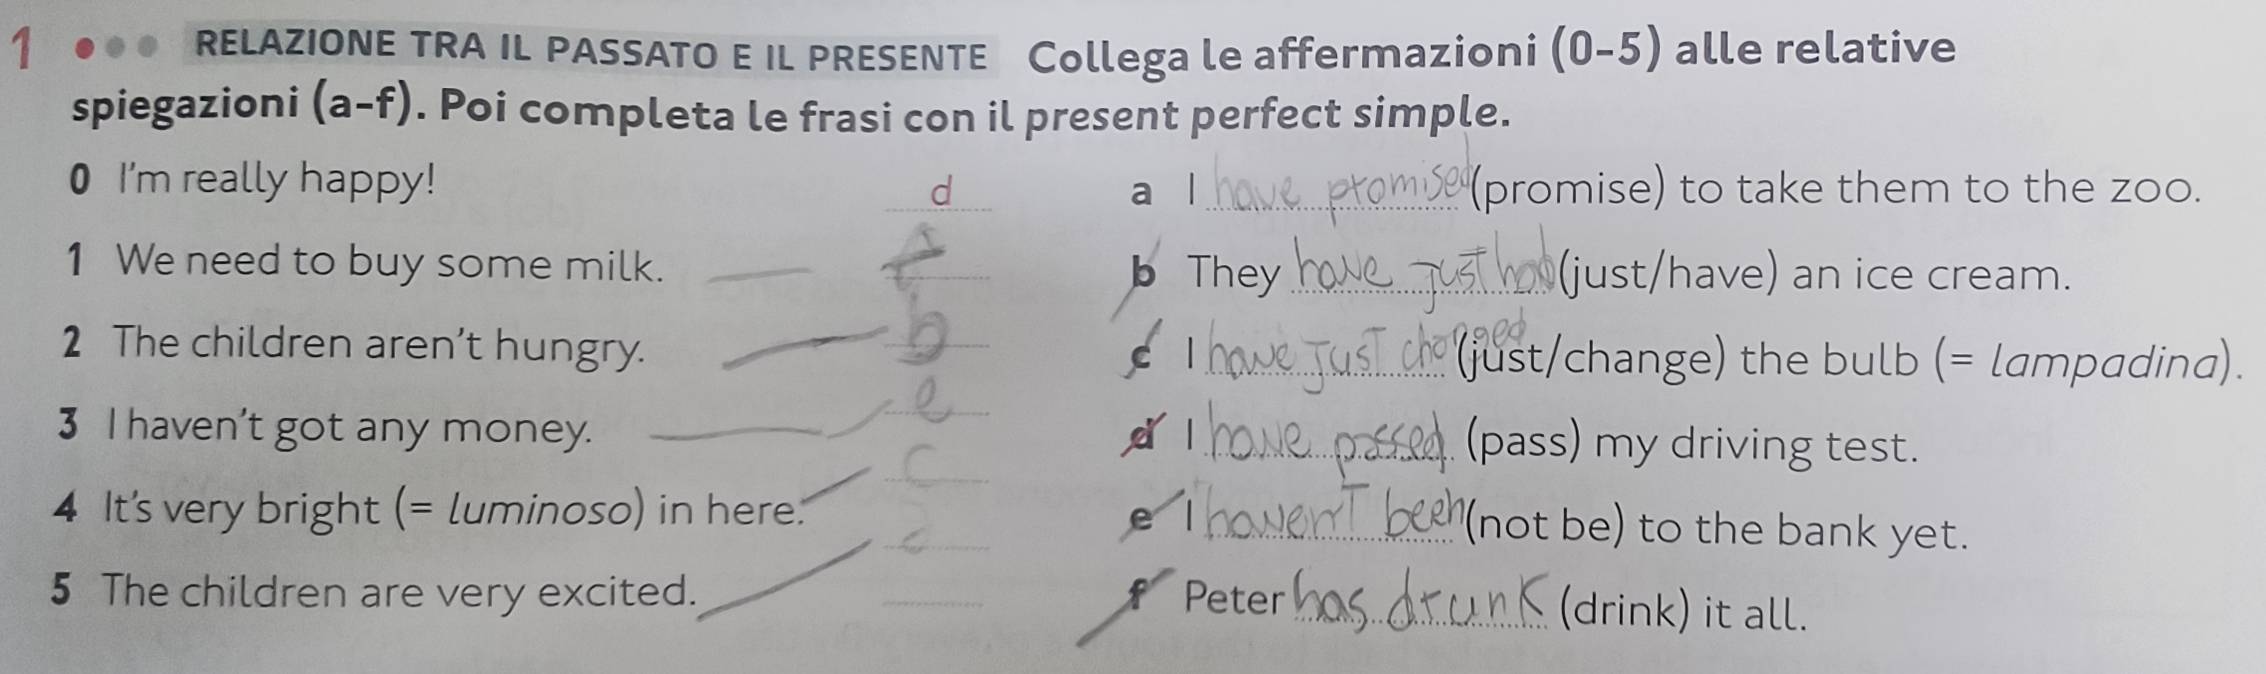 1 RELAZIONE TRA IL PASSATO E IL PRESENTE Collega le affermazioni (0-5) alle relative
spiegazioni (a-f). Poi completa le frasi con il present perfect simple.
0 I'm really happy! d
1 We need to buy some milk. f
2 The children aren't hungry. b
3 I haven't got any money. e
4 It's very bright (= luminoso) in here. c
5 The children are very excited.
a I have promised (promise) to take them to the zoo.
b They have just had (just/have) an ice cream.
c I have just changed (just/change) the bulb (= lampadina).
d I have passed (pass) my driving test.
e I haven't been (not be) to the bank yet.
f Peter has drunk (drink) it all.